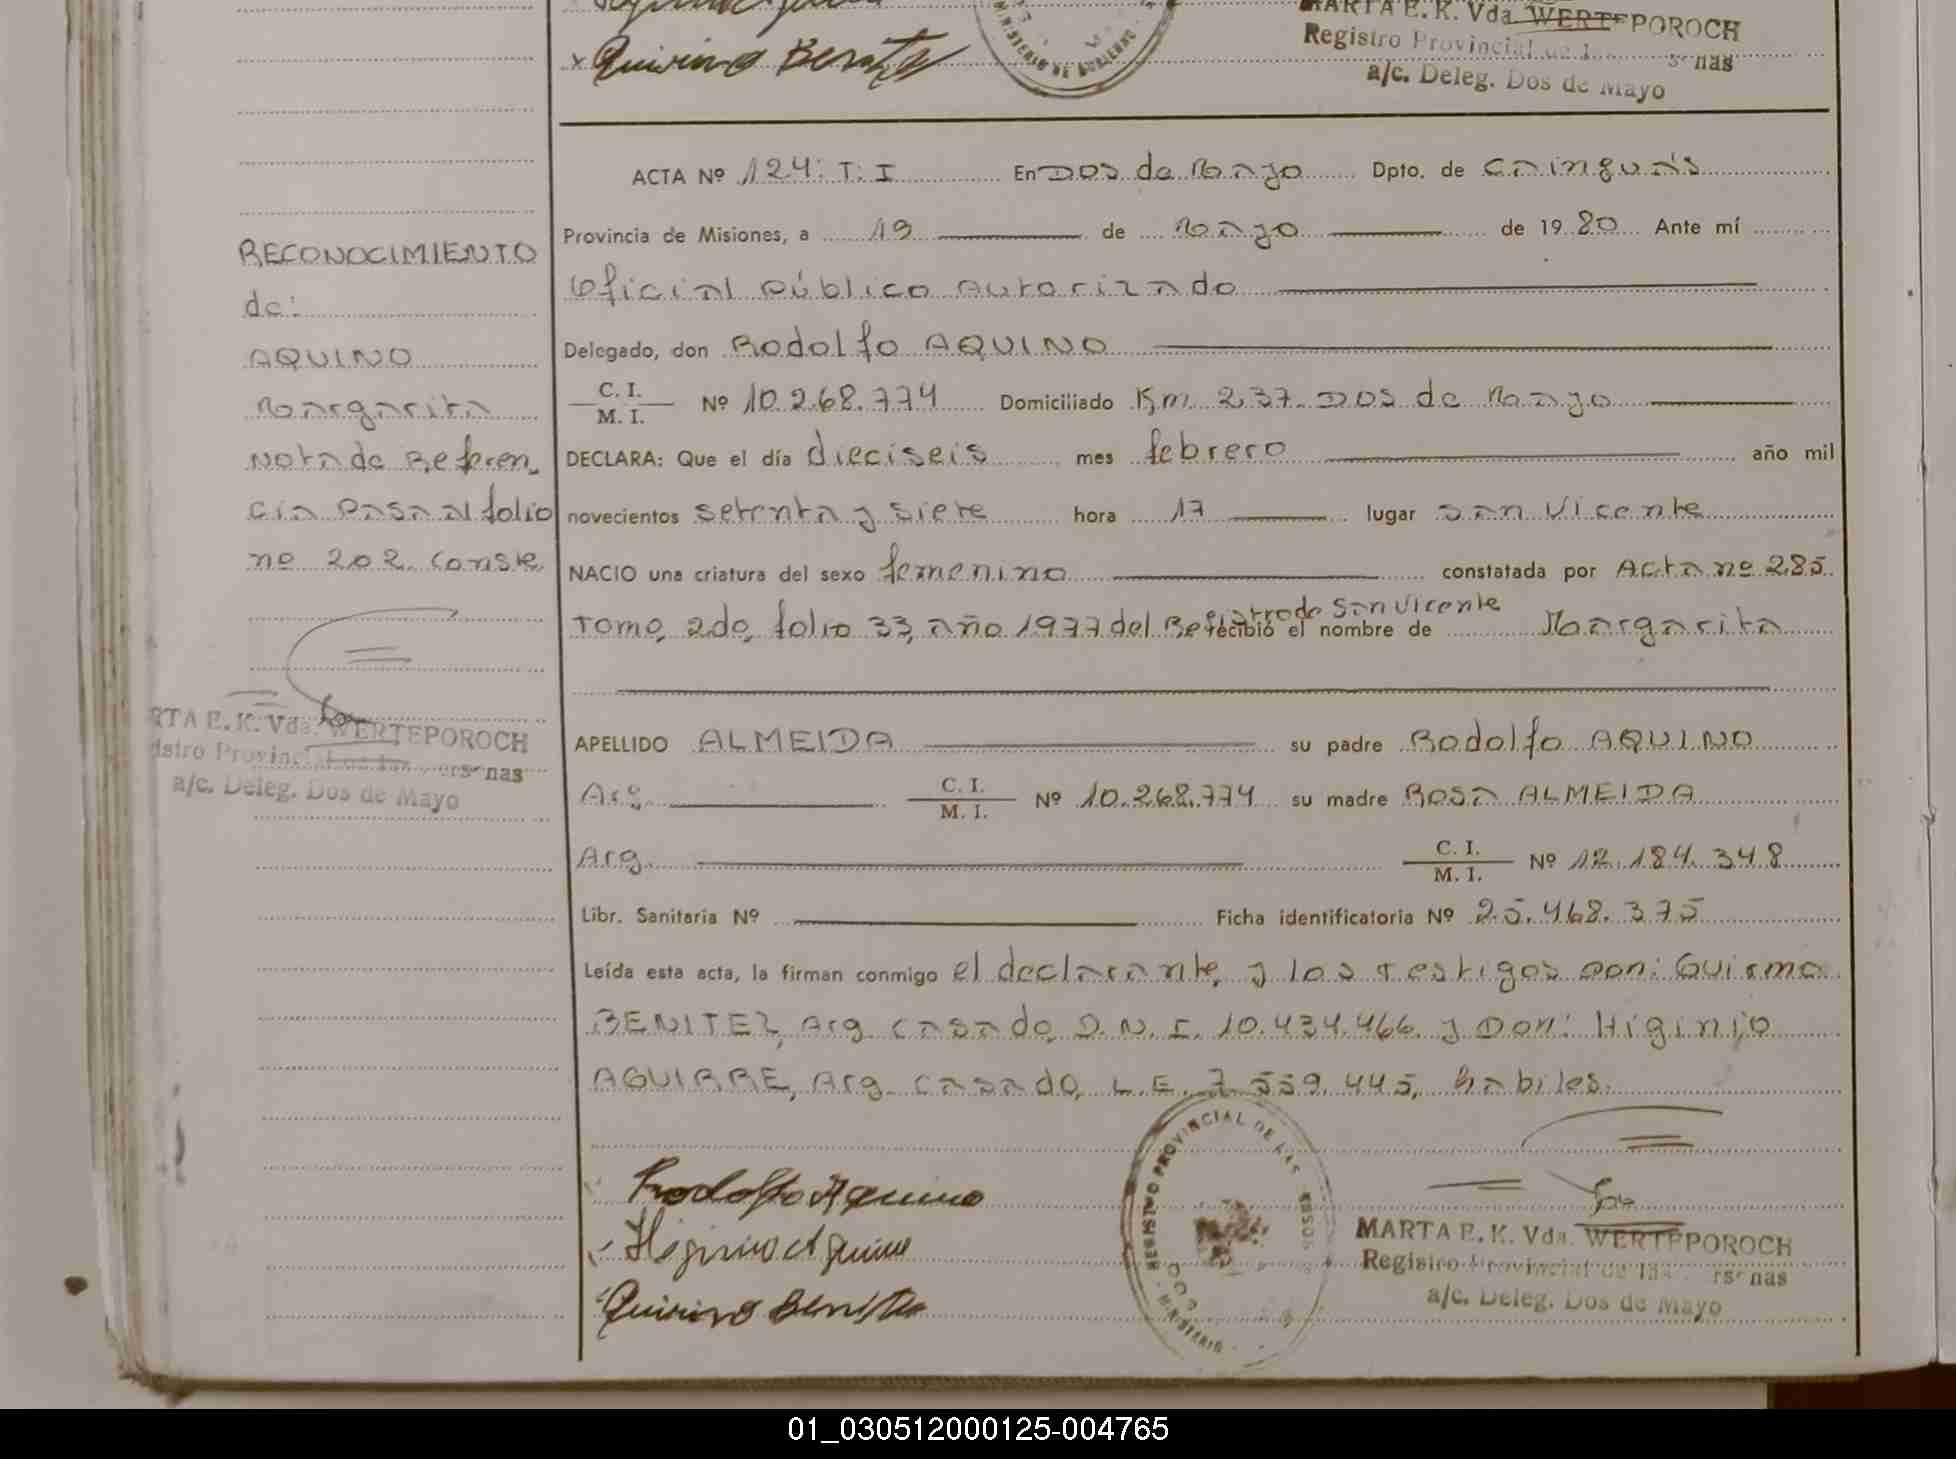 Quirino Benitez
MINISTERIO DE GOBIERNO
MARTA E. K. Vda. WERTEPOROCH
Registro Provincial de las
a/c. Deleg. Dos de Mayo
ACTA Nº 124: T: I En Dos de Mayo Dpto. de Cainguás
Provincia de Misiones, a 19 de Mayo de 1980 Ante mí
Oficial Público Autorizado
Delegado, don Rodolfo AQUINO
C. I.
M. I. Nº 10.268.774 Domiciliado Km. 237. Dos de Mayo
DECLARA: Que el día dieciseis mes febrero año mil
novecientos setenta y siete hora 17 lugar San Vicente
NACIO una criatura del sexo femenino constatada por Acta nº 285.
Tomo, 2do, folio 33, año 1977 del Registro de San Vicente recibió el nombre de Margarita
APELLIDO ALMEIDA su padre Rodolfo AQUINO
Arg. C. I.
M. I. Nº 10.268.774 su madre Rosa ALMEIDA
Arg. C. I.
M. I. Nº 12.184.348
Libr. Sanitaria Nº Ficha identificatoria Nº 25.468.375
Leída esta acta, la firman conmigo el declarante, y los testigos Don: Guirmo
BENITEZ, Arg. casado, D.N.I. 10.434.466. y Don: Higinio
AGUIRRE, Arg. casado, L.E. 7.559.445, habiles.
Rodolfo Aquino
Quirino Benitez
REGISTRO PROVINCIAL DE LAS
MINISTERIO
MARTA E. K. Vda. WERTEPOROCH
Registro Provincial de las
a/c. Deleg. Dos de Mayo
RECONOCIMIENTO
de:
AQUINO
Margarita
Nota de Referen_
cia Pasa al folio
nº 202. Conste.
RTA E. K. Vda. WERTEPOROCH
istro Provincial de las Personas
a/c. Deleg. Dos de Mayo
01_030512000125-004765